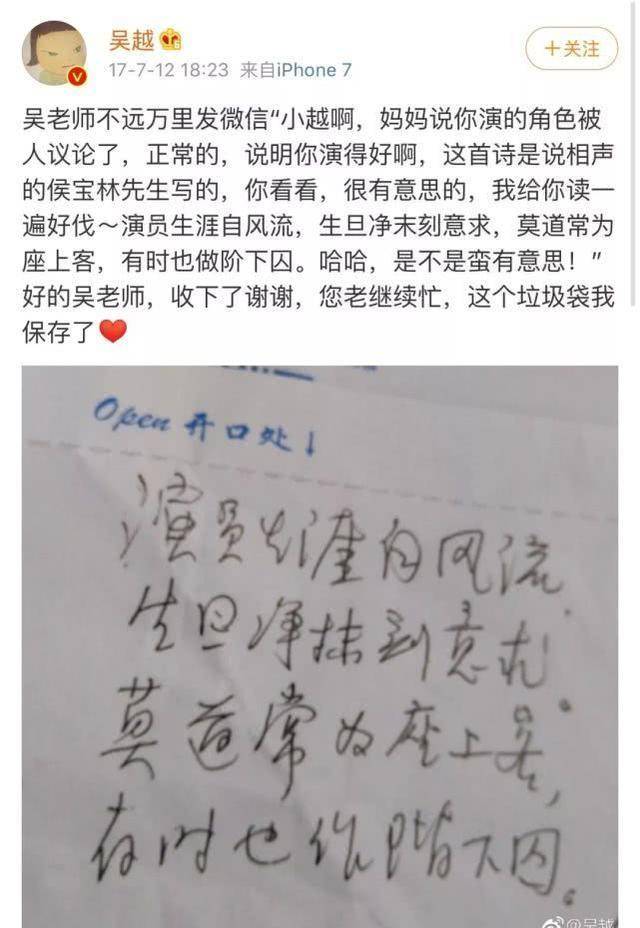 吴越
17-7-12 18:23 来自iPhone 7
+关注
吴老师不远万里发微信“小越啊，妈妈说你演的角色被
人议论了，正常的，说明你演得好啊，这首诗是说相声
的侯宝林先生写的，你看看，很有意思的，我给你读一
遍好伐～演员生涯自风流，生旦净末刻意求，莫道常为
座上客，有时也做阶下囚。哈哈，是不是蛮有意思！”
好的吴老师，收下了谢谢，您老继续忙，这个垃圾袋我
保存了❤️
Open 开口处↓
演员生涯自风流，
生旦净抹刻意求。
莫道常为座上客，
有时也作阶下囚。
@吴越